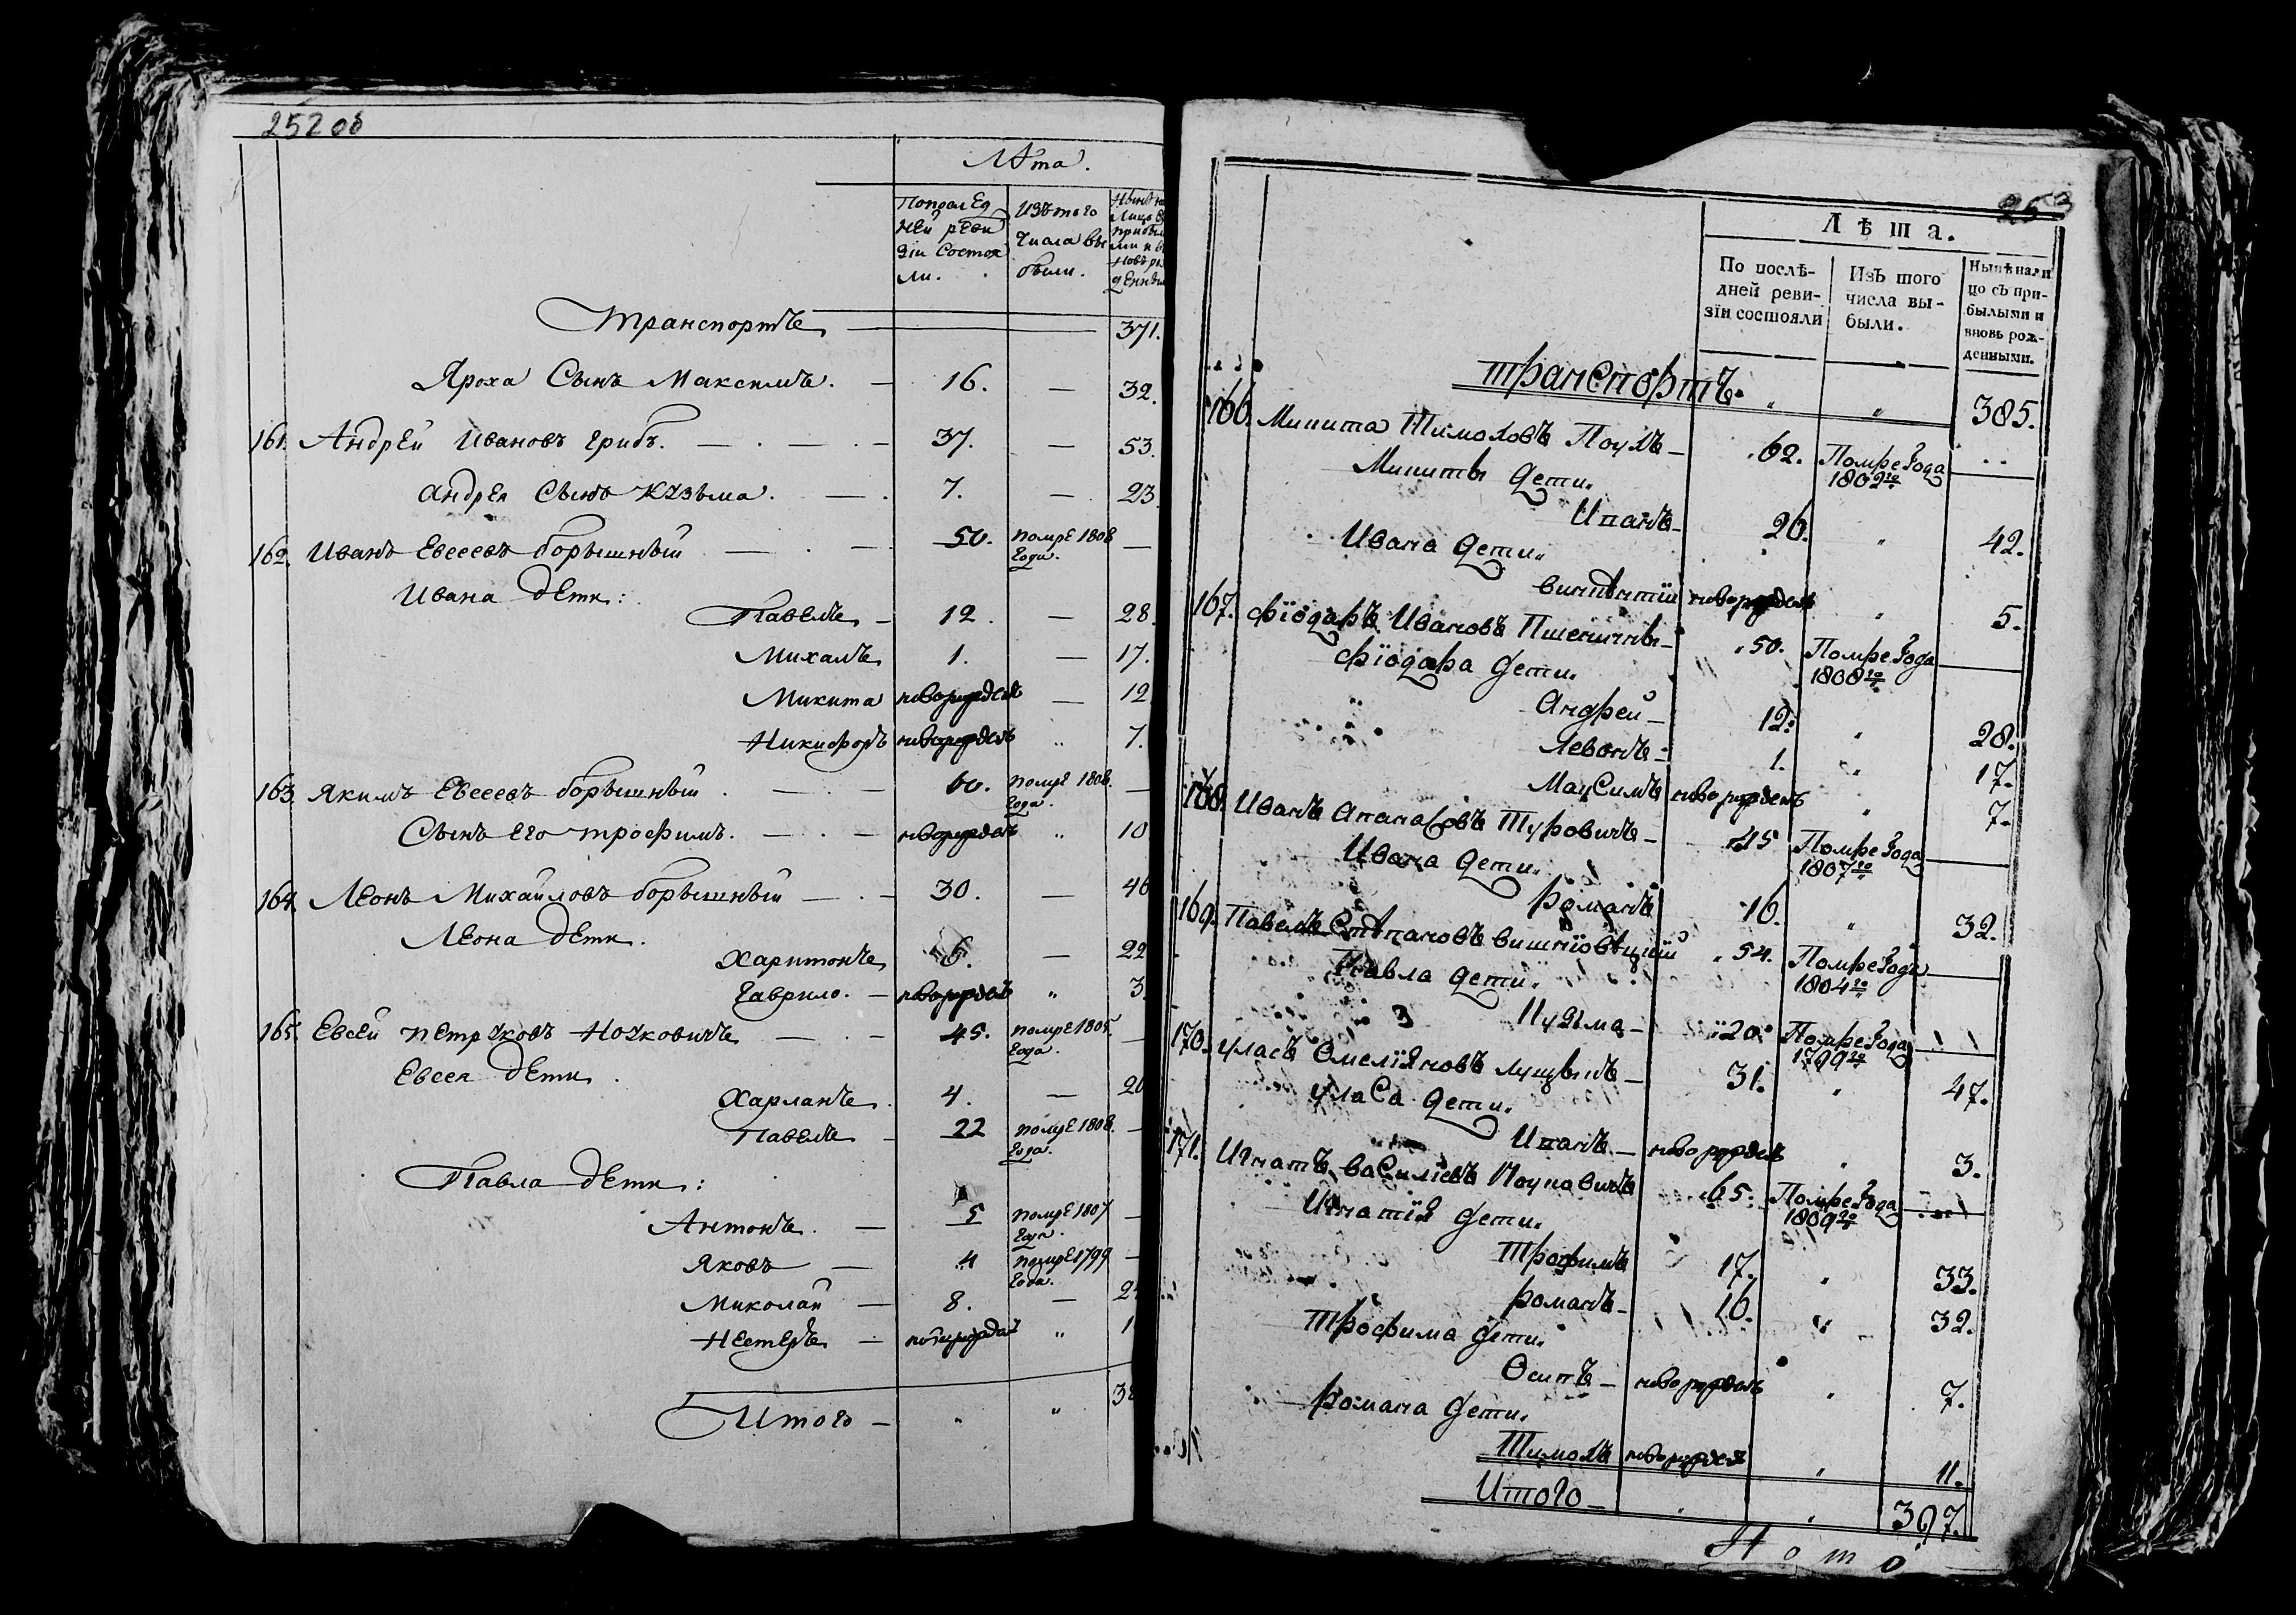 252 об
Лѣта.
По послед
ней реви
зіи состоя
ли.
Изъ того
числа вы
были.
Транспортъ — 371.
Яроха Сынъ Максимъ. — 16. — 32.
161. Андрей Ивановъ Грибъ. — 37. — 53.
Андрея Сынъ Кузьма. — 7. — 23
162. Иванъ Евсеевъ борышный — 50. помре 1808 года. —
Ивана дети:
Павелъ — 12. — 28.
Михалъ 1. — 17.
Микита новорожденъ — 12
Никифоръ новорожденъ " 7.
163. Якимъ Евсеевъ борышный — 60. помре 1808. года. —
Сынъ его трофимъ. — новорожденъ " 10
164. Леонъ Михайловъ борышный — 30. — 46
Леона дети.
Харитонъ 6. — 22
Гаврило. — новорожденъ " 3.
165. Евсей петруковъ — 45. помре 1805. года. —
Евсея дети.
Харланъ. 4. — 20
Павелъ — 22 помре 1808. года. —
Павла дети:
Антонъ. — 5 помре 1807 года. —
Яковъ — 4 помре 1799 года. —
Миколай — 8. — 24
Нестеръ — новорожденъ " 1
Итого — " " 38
253
Лѣта.
По послѣ-
дней реви-
зіи состояли
Изъ того
числа вы-
были.
Нынѣ нали
цо съ при-
былыми и
вновь рож-
денными.
транспортъ. " " 385.
166. Микита Тимоховъ — 62. Помре Года 1802го —
Микиты дети.
Иванъ — 26. " 42.
Ивана дети.
викентій новорожденъ " 5.
167. Фіодаръ Ивановъ — 50. Помре Года 1808го —
Фіодара дети.
Андрей — 12. " 28.
Левонъ — 1. " 17.
Мацсимъ новорожденъ " 7.
168. Иванъ Апанасовъ Туровичъ — 45 Помре Года 1807го —
Ивана дети.
Романъ 16. " 32.
169. Павелъ Стѣпановъ вишніовецкій 54. Помре Года 1804го —
Павла дети.
Кузьма — 20. Помре Года 1799го —
170. Уласъ Омеліяновъ — 31. " 47.
Уласа дети.
Иванъ — новорожденъ " 3.
171. Игнатъ василіевъ 65. Помре Года 1809го —
Игнатія дети.
Трофимъ 17. " 33.
Романъ — 16. " 32.
Трофима дети.
Осипъ — новорожденъ " 7.
Романа дети.
Тимохъ новорожденъ " 11.
Итого — " " 397.